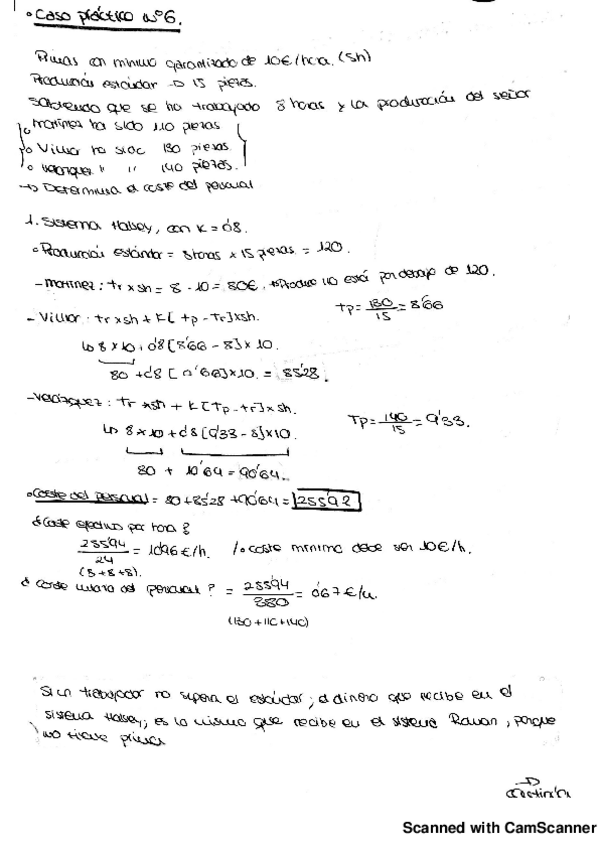 • Caso práctico nº6.
Primas con mínimo garantizado de 10€/hora. (Sh)
Producción estándar → 15 piezas.
Sabiendo que se ha trabajado 8 horas y la producción del señor
• Martínez ha sido 110 piezas
• Villar ha sido 130 piezas
• Velázquez " " 140 piezas.
→ Determina el coste del personal
1. Sistema Halsey, con K = 0'8.
• Producción estándar = 8 horas x 15 piezas = 120.
- Martínez: tr x sh = 8 · 10 = 80€. * Produce 110 está por debajo de 120.
- Villar: tr x sh + K [tp - Tr] x sh. tp = 130/15 = 8'66
↳ 8 x 10 + 0'8 [8'66 - 8] x 10.
80 + 0'8 [0'66] x 10 = 85'28.
- Velázquez: tr x sh + K [Tp - tr] x sh. Tp = 140/15 = 9'33.
↳ 8 x 10 + 0'8 [9'33 - 8] x 10.
80 + 10'64 = 90'64.
• Coste del personal = 80 + 85'28 + 90'64 = 255'92
¿Coste efectivo por hora?
255'94/24 = 10'96€/h. / • coste mínimo debe ser 10€/h.
(8+8+8).
¿Coste unitario del personal? = 255'94/380 = 0'67€/u.
(130+110+140)
Si un trabajador no supera el estándar, el dinero que recibe en el
sistema Halsey, es lo mismo que recibe en el sistema Rowan, porque
no tiene prima
→
Continúa
Scanned with CamScanner